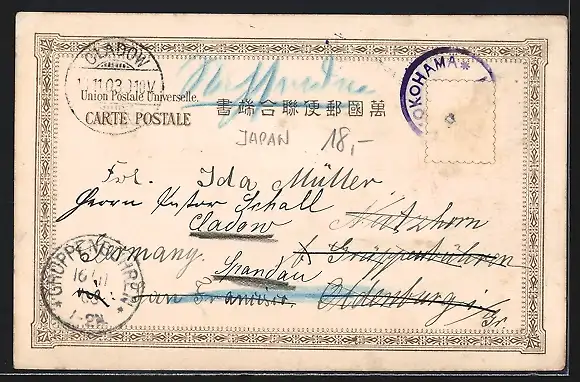 CLADOW
11.03
YOKOHAMA
Union Postale Universelle
CARTE POSTALE
萬國郵便聯合端書
JAPAN 18,-
Frl. Ida Müller
Herrn Pastor Schall
Cladow
Germany. Grüppenbühren
Spandau
San Francisco. Oldenburg i/Gr
GRÜPPENBÜHREN